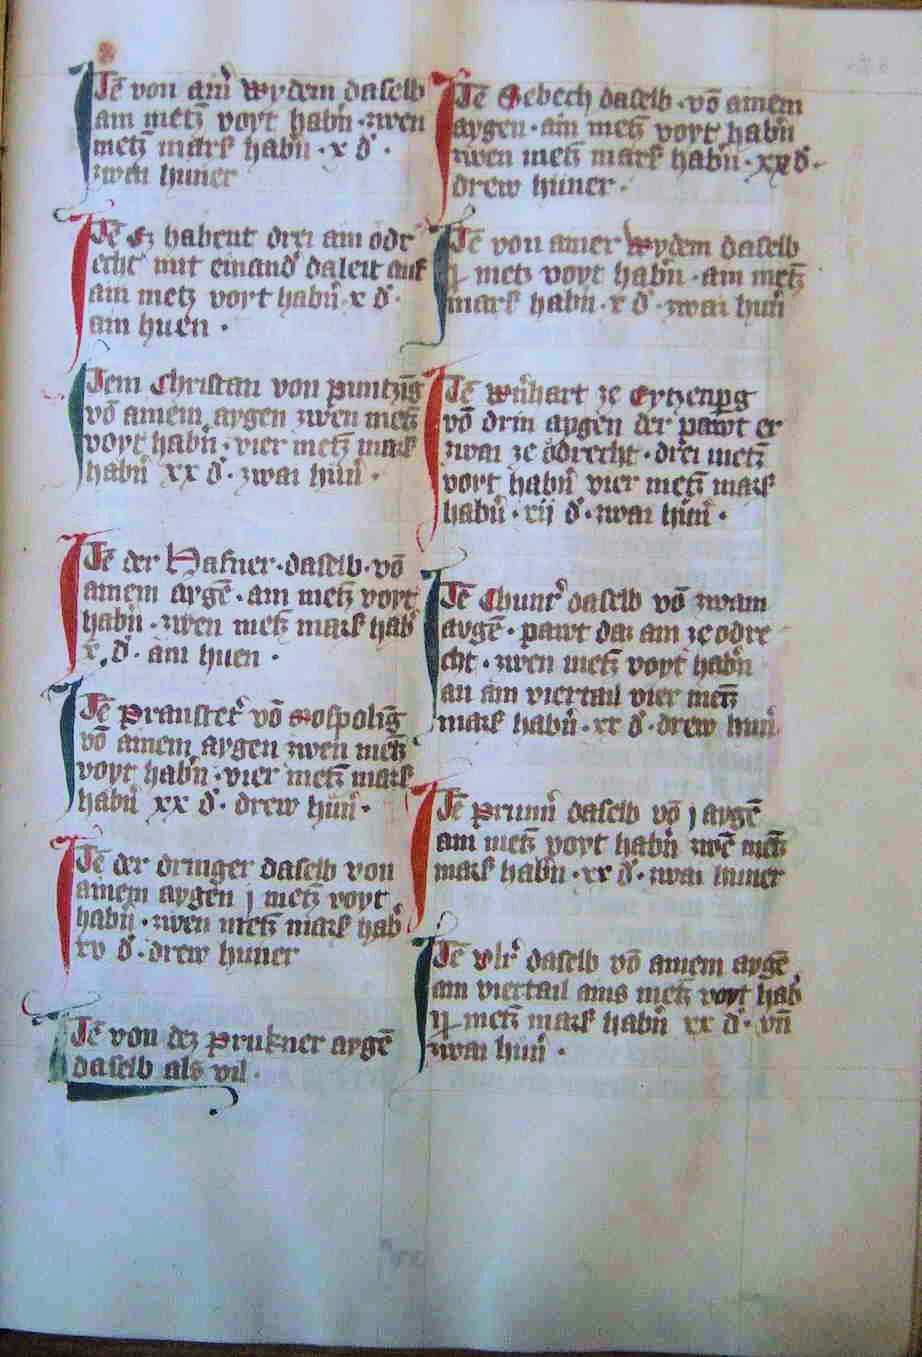 Itē von aīn̄ wydem daselb
ain metz̄ voyt habn̄ · zwen
metz̄ mark habn̄ · x d̄ ·
zwai huner
Itē Ez habent drei ain odr
echt mit einand̄ daleit auf
ain metz voyt habn̄ · x d̄ ·
ain huen ·
Item Christan von puntzīg
vō ainem aygen zwen metz̄
voyt habn̄ · vier metz̄ mark
habn̄ xx d̄ · zwai hūn̄ ·
Itē der Hafner · daselb · vō
ainem aygē · ain metz̄ voyt
habn̄ · zwen metz̄ mark hab̄
x · d̄ · ain huen ·
Itē pranstet̄ vō Rospolīg
vō ainem aygen zwen metz̄
voyt habn̄ · vier metz̄ mark
habn̄ xx d̄ · drew hūn̄ ·
Itē der dringer daselb von
ainem aygen j metz̄ voyt
habn̄ · zwen metz̄ mark hab̄
xv d̄ · drew huner
Itē von dez prukner aygē
daselb als vil ·
Itē Sebech daselb · vō ainem
aygen · ain metz̄ voyt habn̄
zwen metz̄ mark habn̄ · xx d̄ ·
drew huner ·
Itē von ainer wydem daselb
metz voyt habn̄ · ain metz̄
mark habn̄ · x d̄ · zwai hun̄
Itē wn̄hart ze Eytzenpg
vō drin aygen der pawt er
zwai ze ödrecht · drei metz̄
voyt habn̄ vier metz̄ mark
habn̄ · xij d̄ · zwai hūn̄ ·
Itē Chunr̄ daselb vō zwain
aygē · pawt daz ain ze odre
cht · zwen metz̄ voyt habn̄
an ain viertail vier metz̄
mark habn̄ · xx d̄ · drew hūn̄
Itē prunn̄ daselb vō j aygē
ain metz̄ voyt habn̄ zwē metz̄
mark habn̄ · xx d̄ · zwai huner
Itē vlr̄ daselb vō ainem aygē
ain viertail ains metz̄ voyt hab̄
metz̄ mark habn̄ xx d̄ · vn̄
zwai hūn̄ ·